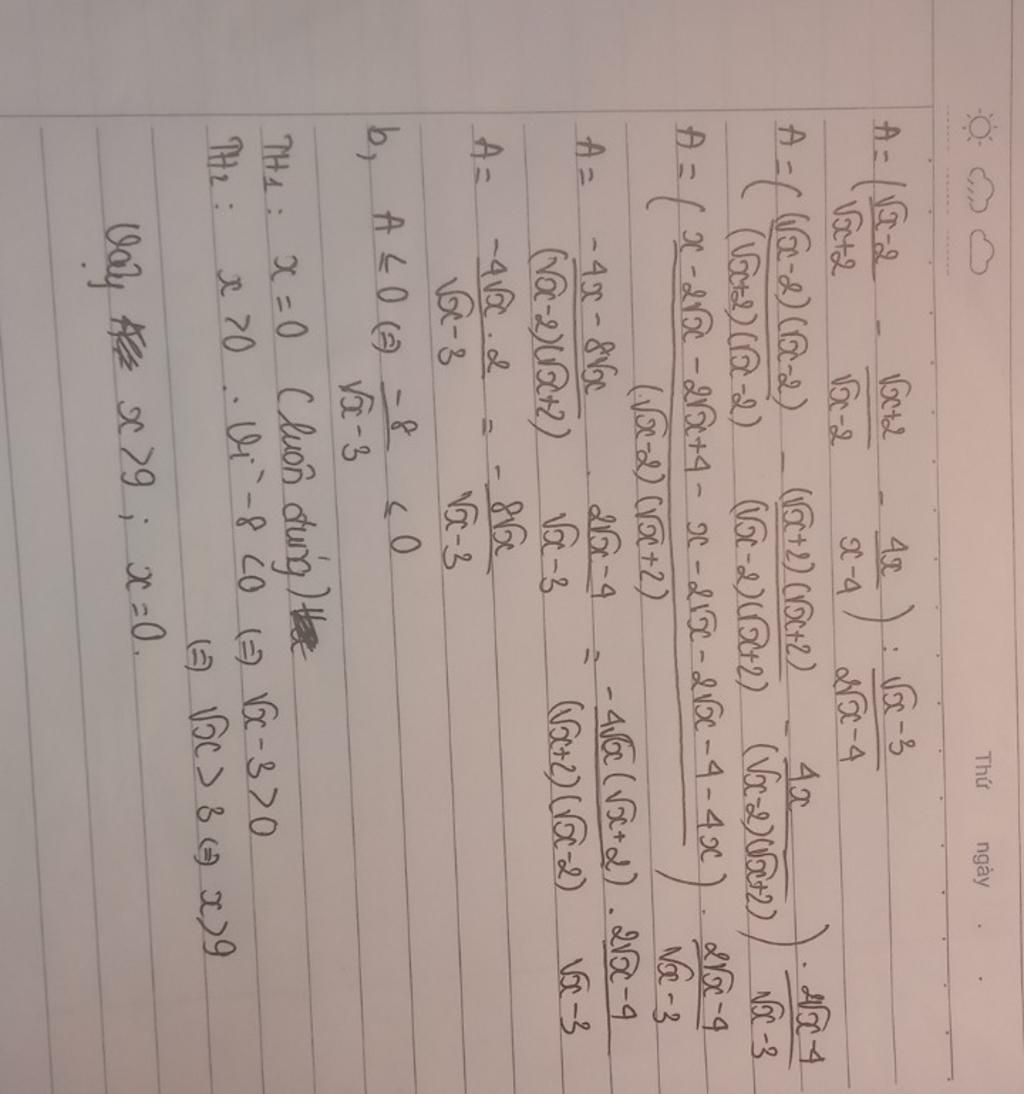 Thứ ngày . .
A = (√x-2/√x+2 - √x+2/√x-2 - 4x/x-4) : √x-3/2√x-4
A = ((√x-2)(√x-2)/(√x+2)(√x-2) - (√x+2)(√x+2)/(√x-2)(√x+2) - 4x/(√x-2)(√x+2)) . 2√x-4/√x-3
A = (x-2√x-2√x+4-x-2√x-2√x-4-4x/(√x-2)(√x+2)) . 2√x-4/√x-3
A = -4x-8√x/(√x-2)(√x+2) . 2√x-4/√x-3 = -4√x(√x+2)/(√x+2)(√x-2) . 2√x-4/√x-3
A = -4√x.2/√x-3 = -8√x/√x-3
b, A ≤ 0 (=) -8/√x-3 ≤ 0
TH1 : x = 0 (luôn đúng)
TH2 : x > 0 . Vì -8 < 0 (=) √x-3 > 0
(=) √x > 3 (=) x > 9
Vậy x > 9 ; x = 0.